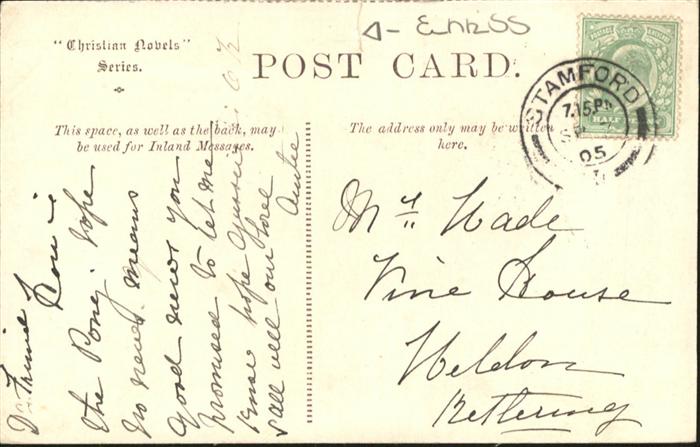 "Christian Novels"
Series.
POST CARD.
This space, as well as the back, may
be used for Inland Messages.
The address only may be written
here.
STAMFORD
7.15 PM
05
POSTAGE
HALF
Mrs Wade
Vine House
Weldon
Kettering
How is
the Pony. hope
no news means
good news you
promised to let me
know hope Gussie
& all well our love
Auntie